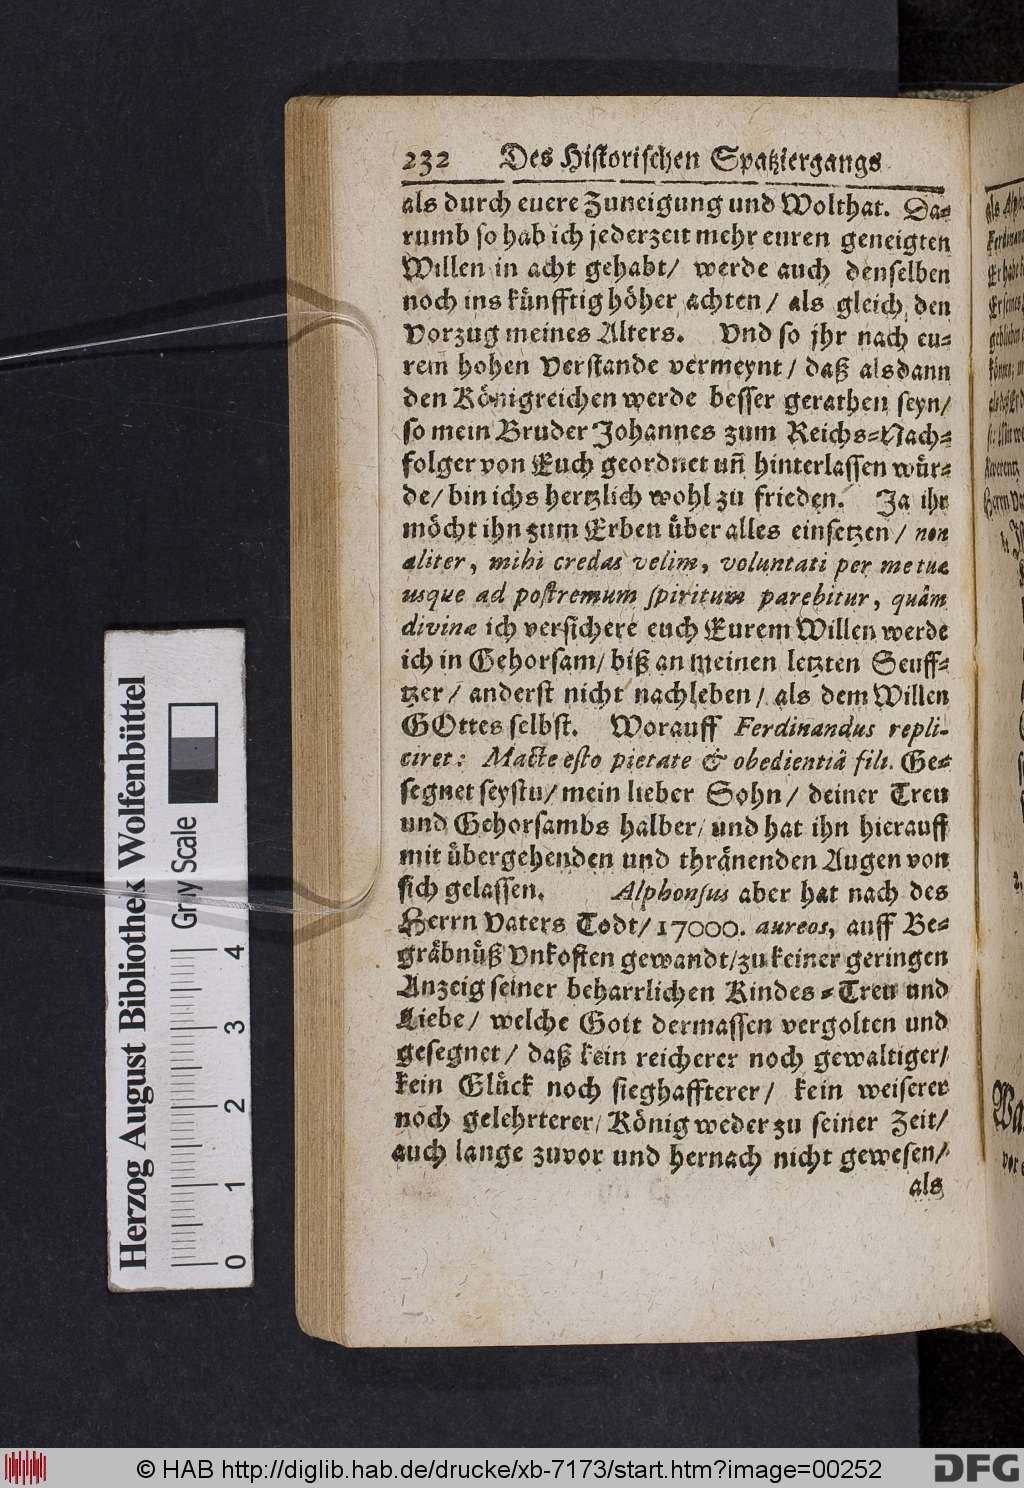 232 Des Historischen Spatziergangs
als durch euere Zuneigung und Wolthat. Da-
rumb so hab ich jederzeit mehr euren geneigten
Willen in acht gehabt/ werde auch denselben
noch ins künfftig höher achten/ als gleich den
Vorzug meines Alters. Vnd so jhr nach eu-
rem hohen Verstande vermeynt/ daß alsdann
den Königreichen werde besser gerathen seyn/
so mein Bruder Johannes zum Reichs-Nach-
folger von Euch geordnet uñ hinterlassen wür-
de/ bin ichs hertzlich wohl zu frieden. Ja ihr
möcht ihn zum Erben über alles einsetzen/ non
aliter, mihi credas velim, voluntati per me tuæ
usque ad postremum spiritum parebitur, quâm
divinæ ich versichere euch Eurem Willen werde
ich in Gehorsam/ biß an meinen letzten Seuff-
tzer/ anderst nicht nachleben/ als dem Willen
GOttes selbst. Worauff Ferdinandus repli-
ciret: Macte esto pietate & obedientiâ fili. Ge-
segnet seystu/ mein lieber Sohn/ deiner Treu
und Gehorsambs halber/ und hat ihn hierauff
mit übergehenden und thränenden Augen von
sich gelassen. Alphonsus aber hat nach des
Herrn Vaters Todt/ 17000. aureos, auff Be-
gräbnüß Vnkosten gewandt/ zu keiner geringen
Anzeig seiner beharrlichen Kindes-Treu und
Liebe/ welche Gott dermassen vergolten und
gesegnet/ daß kein reicherer noch gewaltiger/
kein Glück noch sieghaffterer/ kein weiserer
noch gelehrterer/ König weder zu seiner Zeit/
auch lange zuvor und hernach nicht gewesen/
als
Herzog August Bibliothek Wolfenbüttel
Gray Scale
0 1 2 3 4
© HAB http://diglib.hab.de/drucke/xb-7173/start.htm?image=00252
DFG